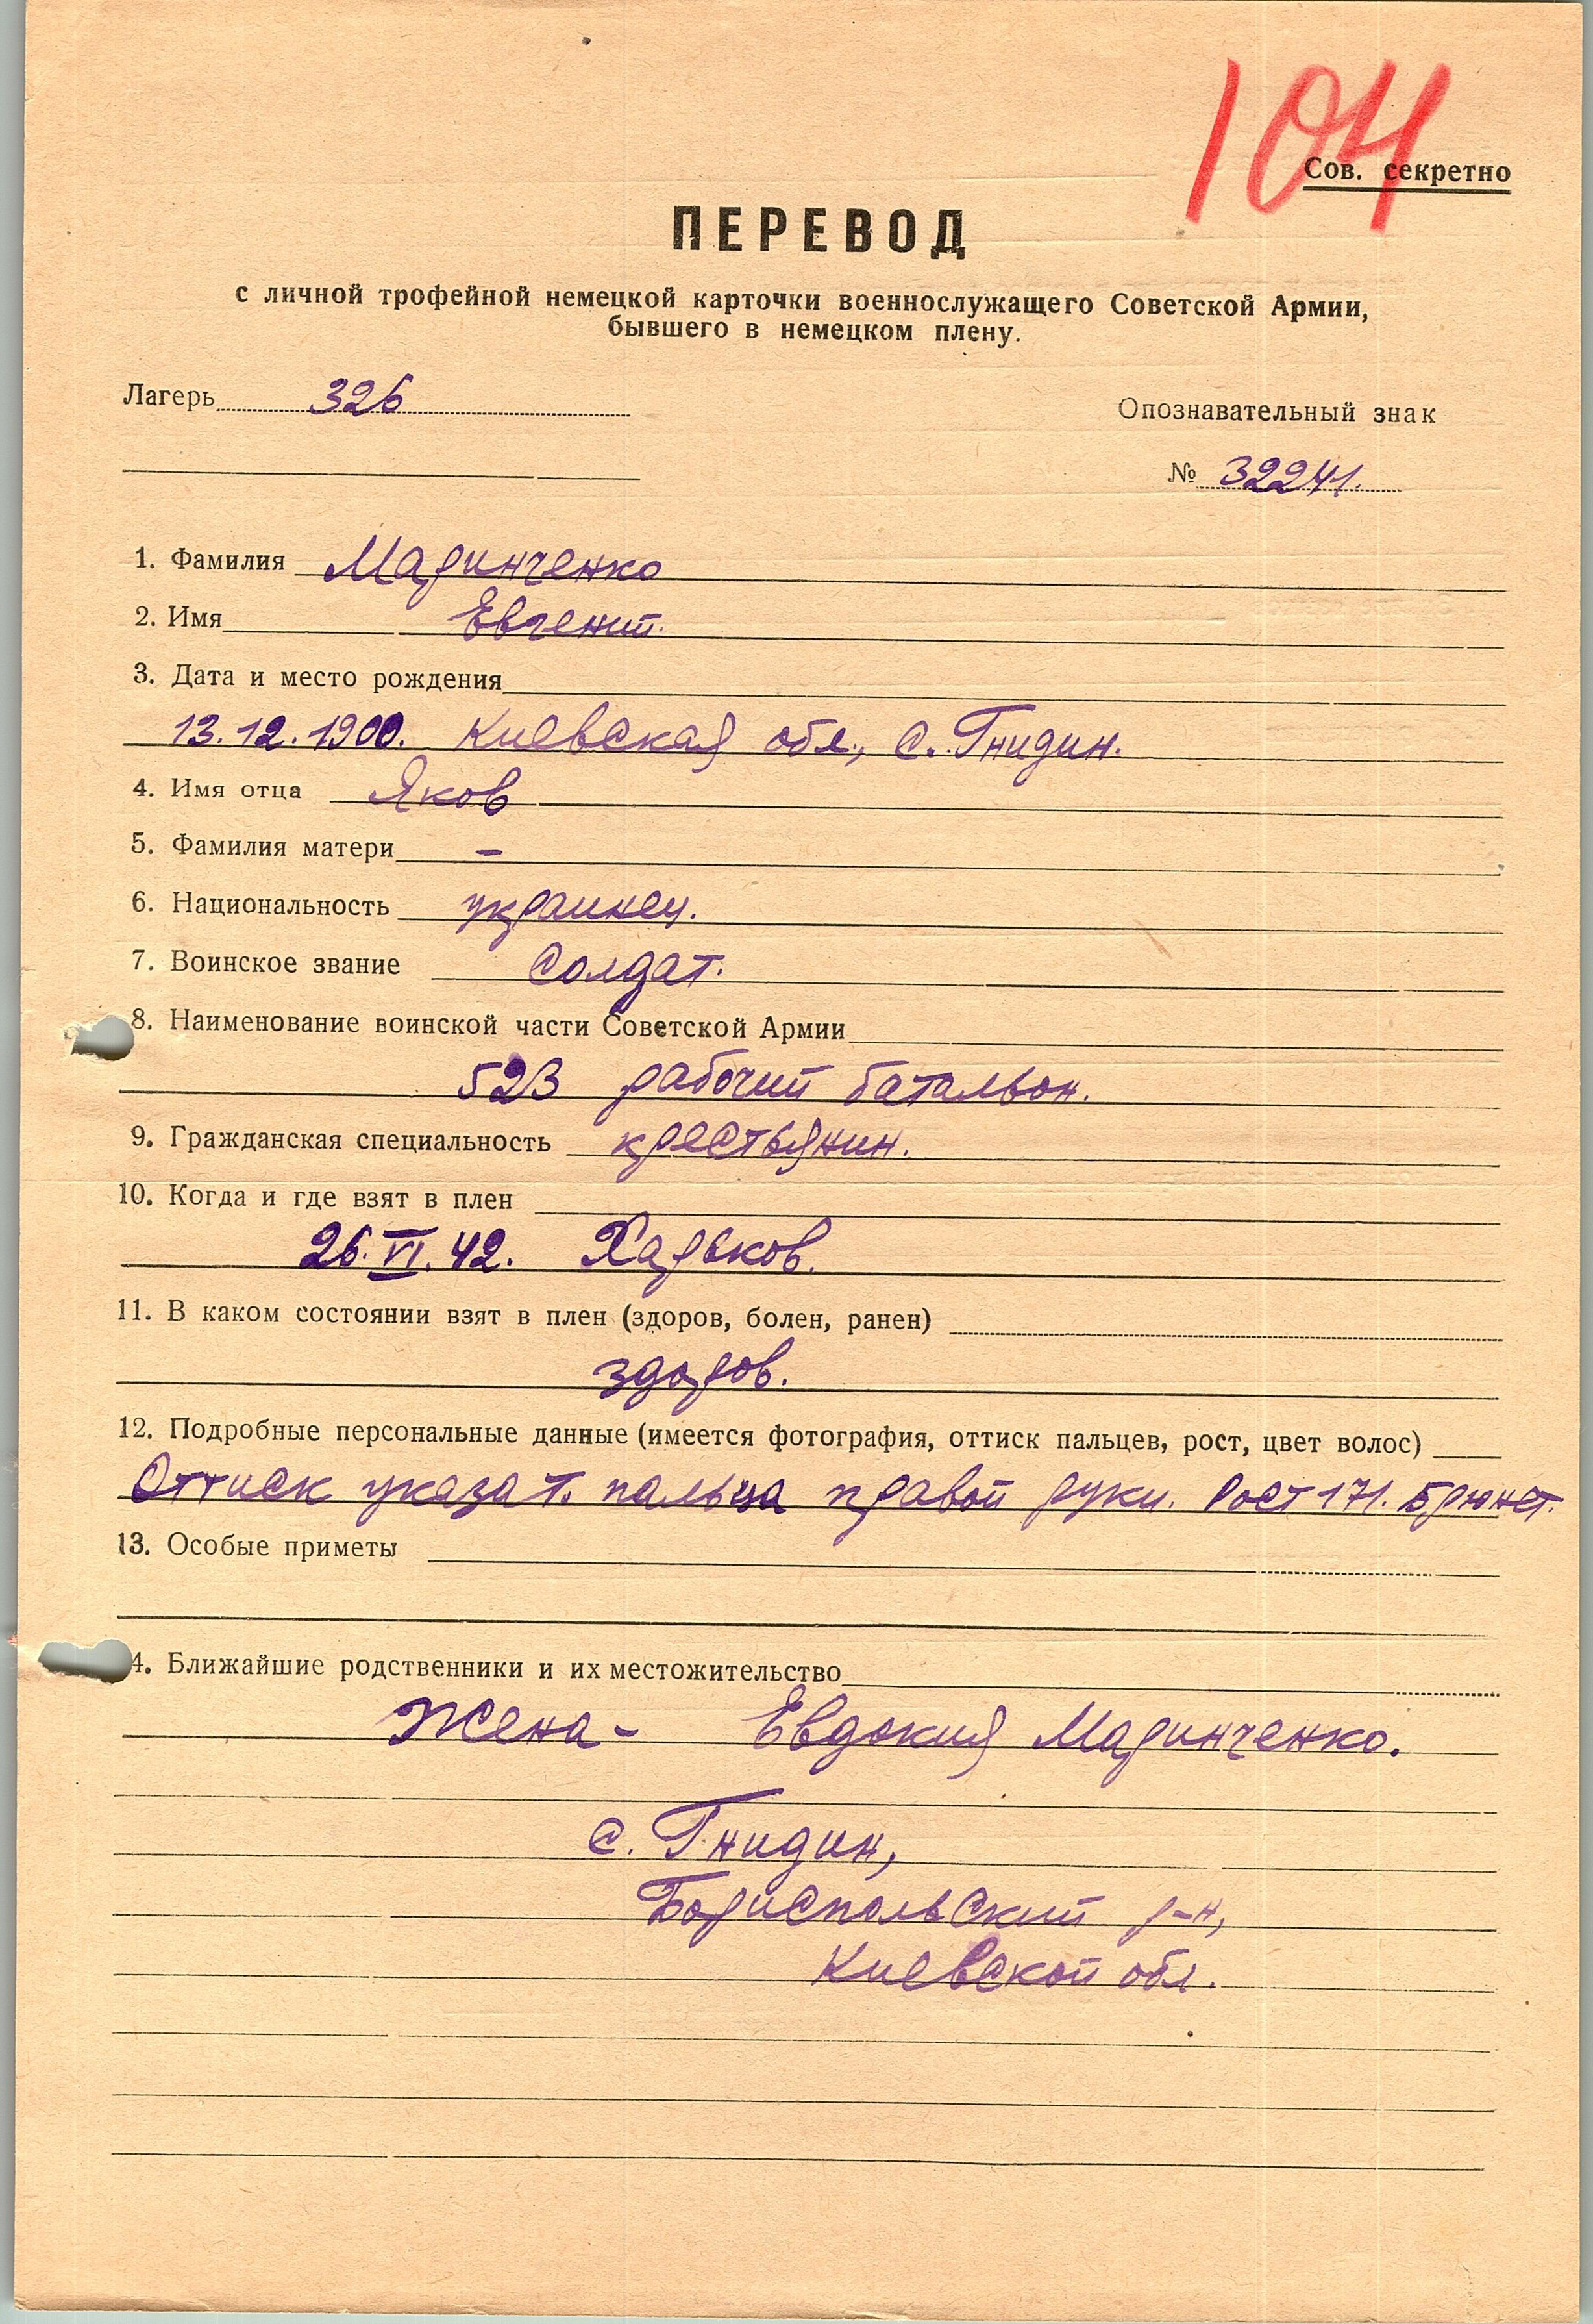 104
Сов. секретно
ПЕРЕВОД
с личной трофейной немецкой карточки военнослужащего Советской Армии,
бывшего в немецком плену.
Лагерь 326
Опознавательный знак
№ 32241.
1. Фамилия Маринченко
2. Имя Евгений.
3. Дата и место рождения
13.12.1900. Киевская обл., с. Гнидин.
4. Имя отца Яков
5. Фамилия матери –
6. Национальность украинец.
7. Воинское звание Солдат.
8. Наименование воинской части Советской Армии
523 рабочий батальон.
9. Гражданская специальность крестьянин.
10. Когда и где взят в плен
26.VI.42. Харьков.
11. В каком состоянии взят в плен (здоров, болен, ранен)
здоров.
12. Подробные персональные данные (имеется фотография, оттиск пальцев, рост, цвет волос)
Оттиск указат. пальца правой руки. Рост 171. Брюнет.
13. Особые приметы
4. Ближайшие родственники и их местожительство
Жена – Евдокия Маринченко.
с. Гнидин,
Бориспольский р-н,
Киевской обл.